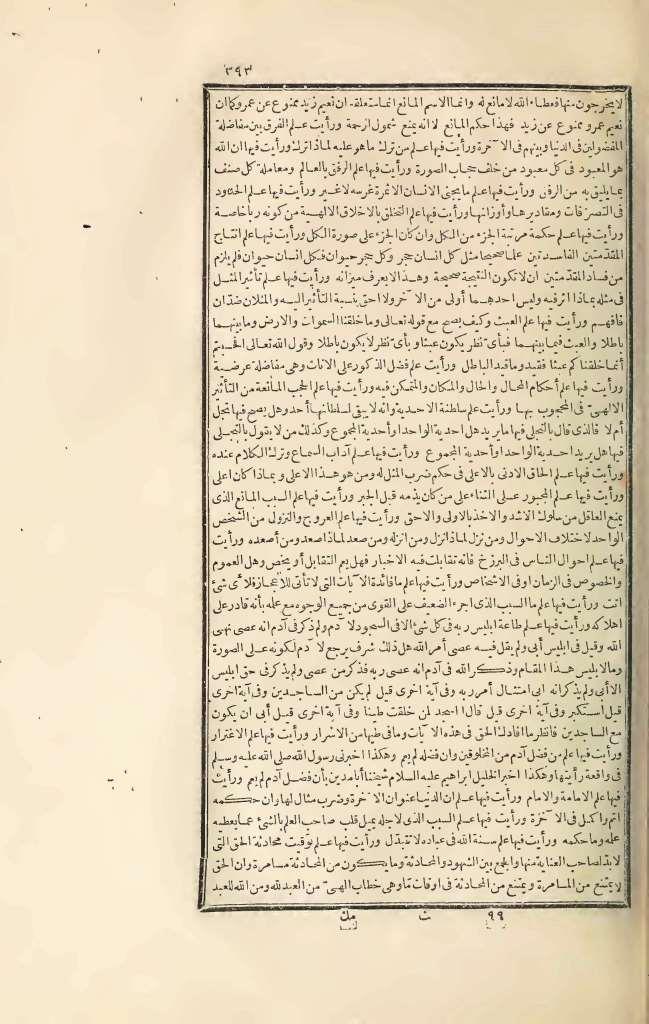 ٣٩٣
لا يخرجون منها فعطاء الله لا مانع له وانما الاسم المانع انما متعلقه ان نعيم زيد ممنوع عن عمرو كما ان
نعيم عمرو ممنوع عن زيد فهذا حكم المانع لا انه يمنع شمول الرحمة ورأيت علم الفرق بين مفاضلة
المفضولين فى الدنيا وبينهم فى الآخرة ورأيت فيها علم من ترك ما هو عليه لماذا ترك ورأيت فيها ان الله
هو المعبود فى كل معبود من خلف حجاب الصورة ورأيت فيها علم الرفق بالعالم ومعاملة كل صنف
بما يليق به من الرفق ورأيت فيها علم ما يجنى الانسان الا ثمرة غرسه لا غير ورأيت فيها علم الحدود
فى التصرفات ومقاديرها وأوزانها ورأيت فيها علم التخلق بالاخلاق الالهية من كونه ربا خاصة
ورأيت فيها علم حكمة مرتبة الجزء من الكل وان كان الجزء على صورة الكل ورأيت فيها علم انتاج
المقدمتين الفاسدتين علما صحيحا مثل كل انسان حجر وكل حجر حيوان فكل انسان حيوان فلم يلزم
من فساد المقدمتين ان لا تكون النتيجة صحيحة وهذا لا يعرف ميزانه ورأيت فيها علم تأثير المثل
فى مثله بماذا اثر فيه وليس احدهما أولى من الآخر ولا احق بنسبة التأثير اليه والمثلان ضدان
فافهم ورأيت فيها علم العبث وكيف يصح مع قوله تعالى وما خلقنا السموات والارض وما بينهما
باطلا والعبث فيما بينهما فبأى نظر يكون عبثا وبأى نظر لا يكون باطلا وقول الله تعالى افحسبتم
أنما خلقناكم عبثا فقيد وما قيد الباطل ورأيت علم فضل الذكور على الاناث وهى مفاضلة عرضية
ورأيت فيها علم أحكام المحال والحال والمكان والمتمكن فيه ورأيت فيها علم الحجب المانعة من التأثير
الالهى فى المحجوب بها ورأيت علم سلطنة الاحدية وانه لا يبقى لسلطانها أحد وهل يصح فيها تجل
أم لا فالذى قال بالتجلى فيها ما يريد هل احدية الواحد او أحدية المجموع وكذلك من لا يقول بالتجلى
فيها هل يريد احدية الواحد او أحدية المجموع ورأيت فيها علم آداب السماع وترك الكلام عنده
ورأيت فيها علم الحاق الادنى بالاعلى فى حكم ضرب المثل له ومن هو هذا الاعلى وبماذا كان أعلى
ورأيت فيها علم المجبور على الثناء على من كان يذمه قبل الجبر ورأيت فيها علم السبب المانع الذى
يمنع العاقل من سلوك الاشد والاخذ بالاولى والاحق ورأيت فيها علم العروج والنزول من الشخص
الواحد لاختلاف الاحوال ومن نزل لماذا نزل ومن انزله ومن صعد لماذا صعد ومن أصعده ورأيت
فيها علم احوال الناس فى البرزخ فانه تقابلت فيه الاخبار فهل يعم التقابل أو يخص وهل العموم
والخصوص فى الزمان او فى الاشخاص ورأيت فيها علم ما فائدة الآيات التى لا تأتى للاعجاز فلأى شئ
اتت ورأيت فيها علم ما السبب الذى اجرء الضعيف على القوى من جميع الوجوه مع علمه بأنه قادر على
اهلاكه ورأيت فيها علم طاعة ابليس ربه فى كل شئ الا فى السجود لآدم ولم ذكر فى آدم انه عصى نهى
الله وقيل فى ابليس أبى ولم يقل فيه عصى أمر الله هل ذلك شرف يرجع لآدم لكونه على الصورة
وما لابليس هذا المقام وذكر الله فى آدم انه عصى ربه فذكر من عصى ولم يذكر فى حق ابليس
الا أبى ولم يذكر انه ابى امتثال أمر ربه وفى آية اخرى قيل لم يكن من الساجدين وفى آية اخرى
قيل أستكبر وفى آية اخرى قيل قال أأسجد لمن خلقت طينا وفى آية اخرى قيل أبى ان يكون
مع الساجدين فانظر ما افادك الحق فى هذه الآيات وما فى طيها من الاسرار ورأيت فيها علم الاغترار
ورأيت فيها علم من فضل آدم من المخلوقين وان فضله لم يعم وهكذا اخبرنى رسول الله صلى الله عليه وسلم
فى واقعة رأيتها وهكذا اخبر الخليل ابراهيم عليه السلام شيخنا أبا مدين بأن فضل آدم لم يعم ورأيت
فيها علم الامامة والامام ورأيت فيها علم ان الدنيا عنوان الآخرة وضرب مثال لها وان حكمه
اتم واكمل فى الآخرة ورأيت فيها علم السبب الذى لاجله يميل قلب صاحب العلم بالشئ عما يعطيه
علمه وما حكمه ورأيت فيها علم سنة الله فى عباده لا تتبدل ورأيت فيها علم توقيت محادثة الحق التى
لا بد لصاحب العناية منها والجمع بين الشهود والمحادثة وما يكون من المحادثة مسامرة وان الحق
لا يمتنع من المسامرة ويمتنع من المحادثة فى اوقات ما وهى خطاب الهى من العبد لله ومن الله للعبد
٩٩ ث مك